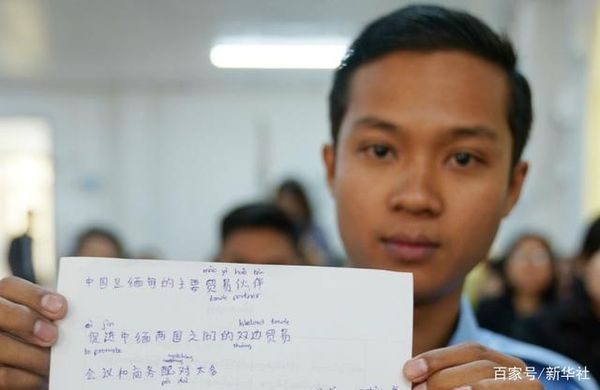 mào yì huǒ bàn
中国是缅甸的主要贸易伙伴
trade partner
jìn bilateral trade
促进中缅两国之间的双边贸易
to promote
matching
会议和商务配对大多
pèi duì
百家号/新华社